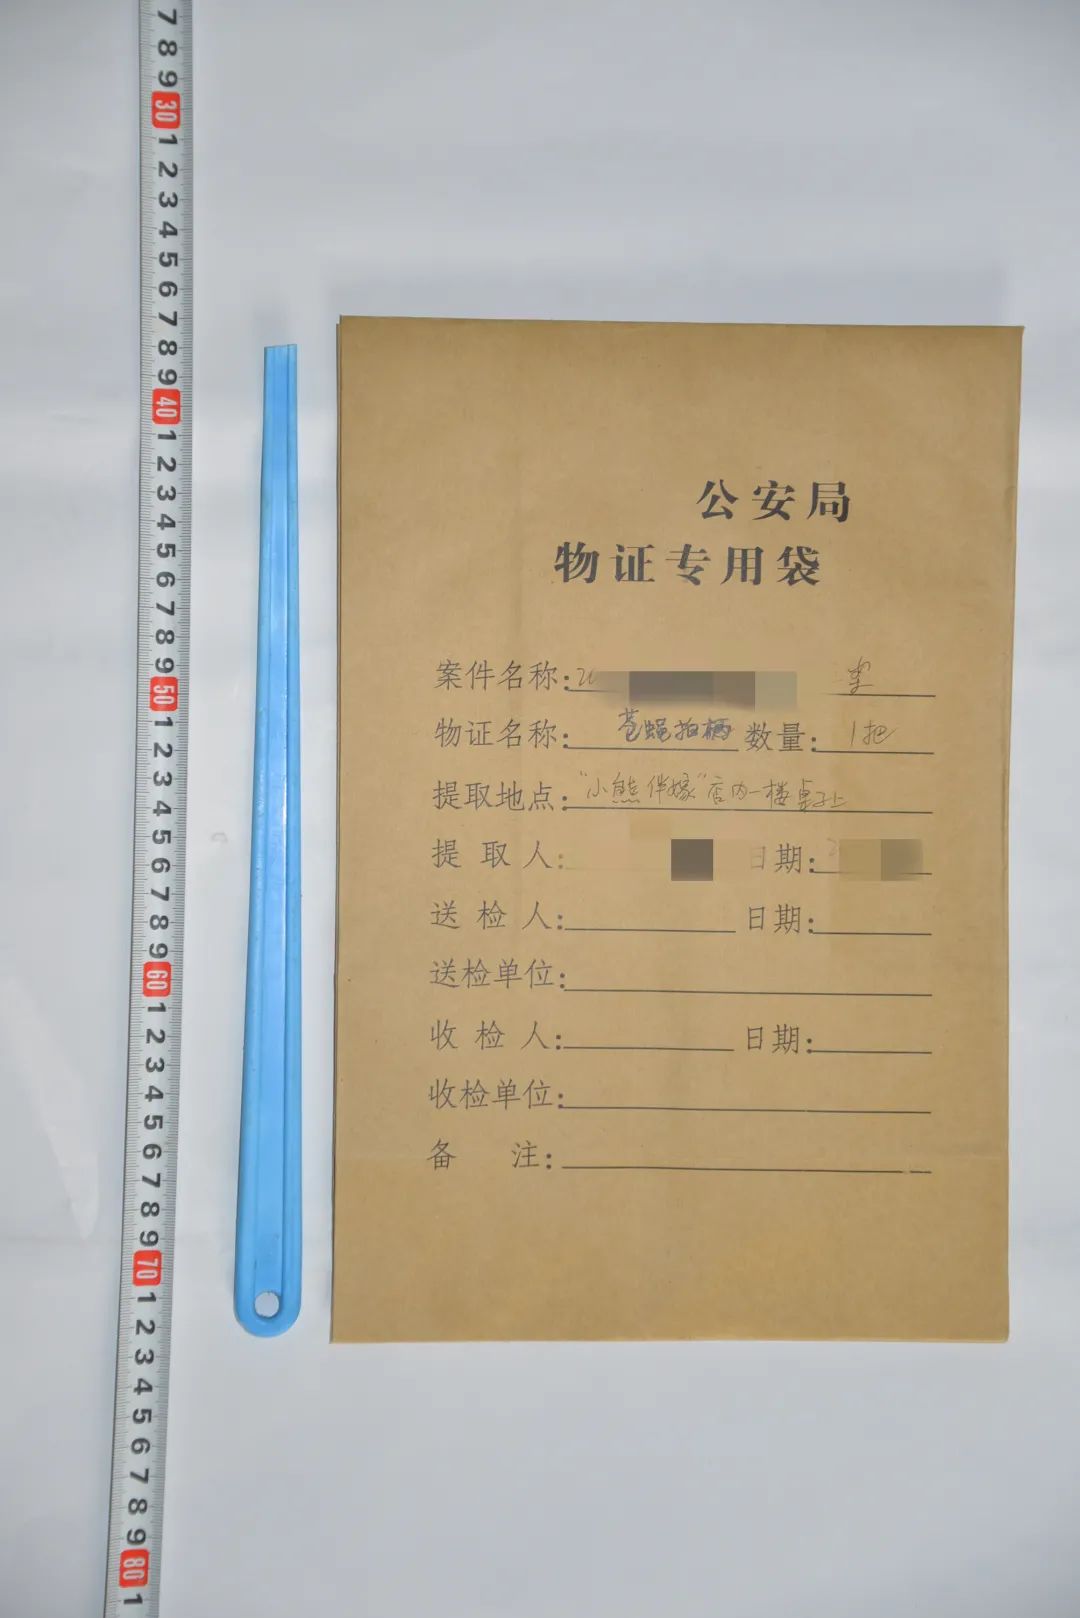 7
8
9
30
1
2
3
4
5
6
7
8
9
40
1
2
3
4
5
6
7
8
9
50
1
2
3
4
5
6
7
8
9
60
1
2
3
4
5
6
7
8
9
70
1
2
3
4
5
6
7
8
9
80
1
公安局
物证专用袋
案件名称:
物证名称: 苍蝇拍柄 数量: 1把
提取地点: "小熊伴嫁"店内一楼桌子上
提取人: 日期:
送检人: 日期:
送检单位:
收检人: 日期:
收检单位:
备注: